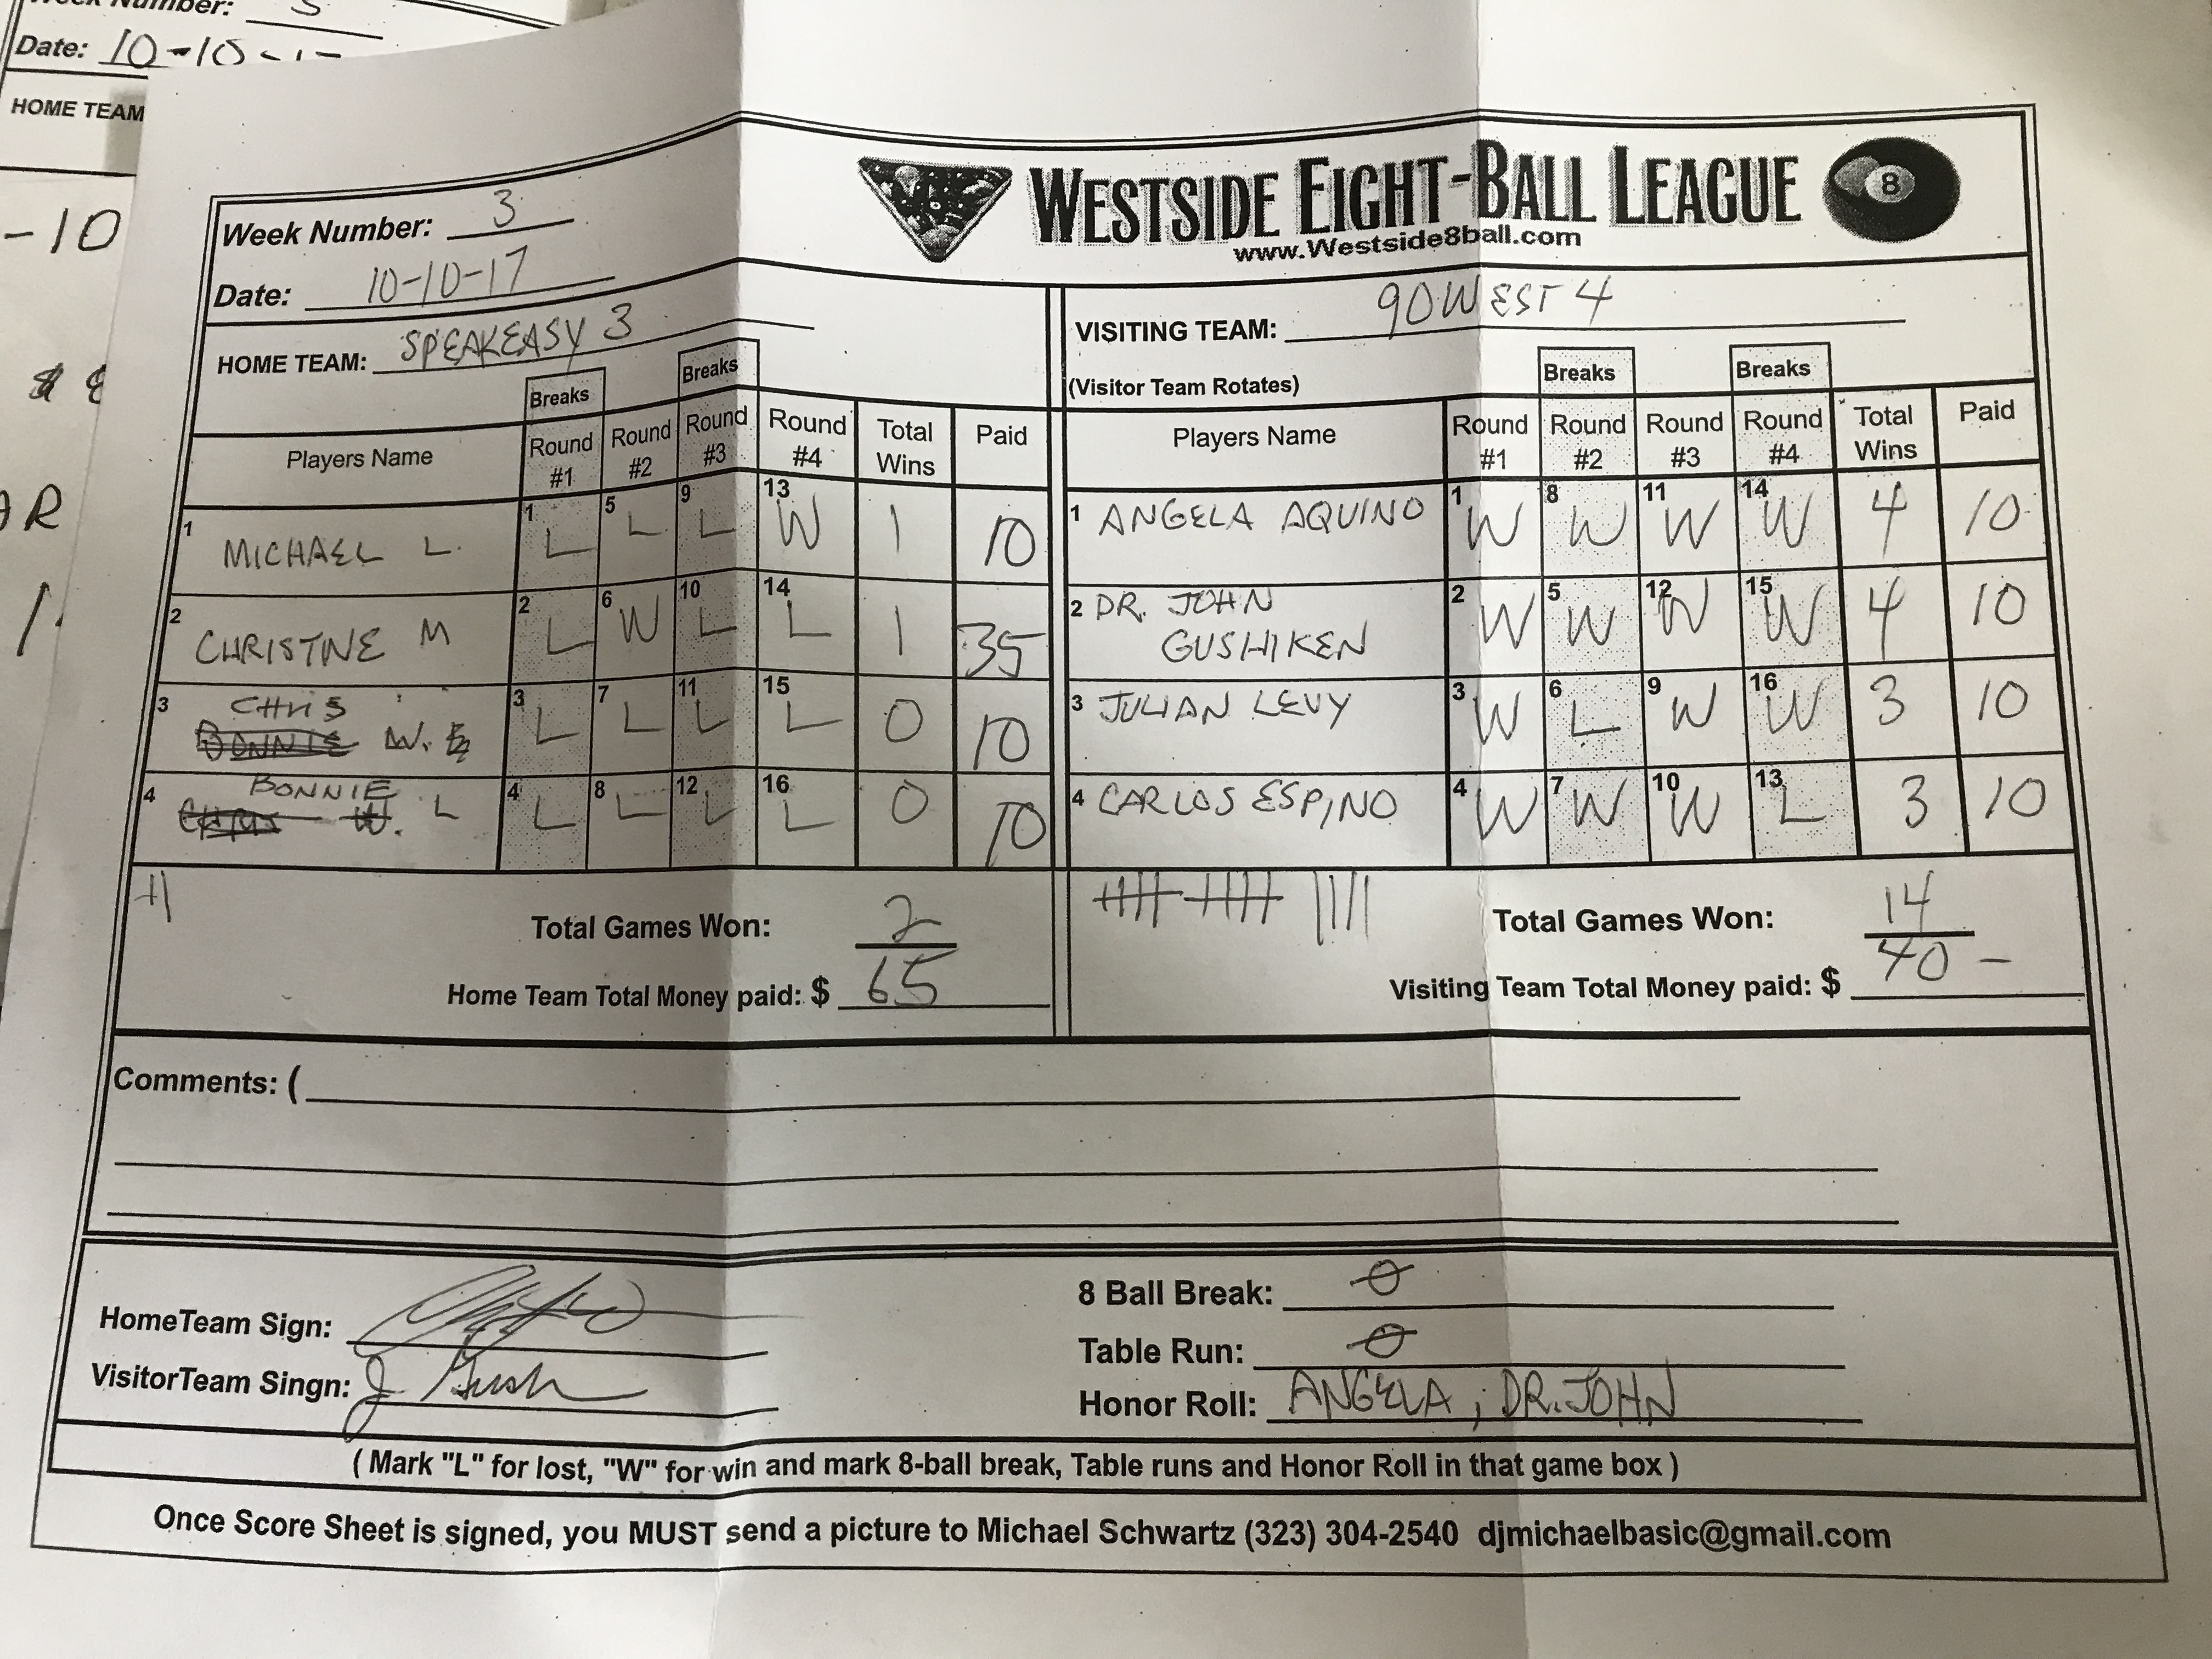 Week Number: 3
Date: 10-10-17
WESTSIDE EIGHT-BALL LEAGUE
8
www.Westside8ball.com
HOME TEAM: SPEAKEASY 3
VISITING TEAM: 90 WEST 4
(Visitor Team Rotates)
Breaks Breaks Breaks Breaks
Players Name Round #1 Round #2 Round #3 Round #4 Total Wins Paid
Players Name Round #1 Round #2 Round #3 Round #4 Total Wins Paid
1 MICHAEL L. 1 L 5 L 9 L 13 W 1 10
1 ANGELA AQUINO 1 W 8 W 11 W 14 W 4 10
2 CHRISTINE M 2 L 6 W 10 L 14 L 1 35
2 DR. JOHN GUSHIKEN 2 W 5 W 12 W 15 W 4 10
3 CHRIS W. 3 L 7 L 11 L 15 L 0 10
3 JULIAN LEVY 3 W 6 L 9 W 16 W 3 10
4 BONNIE L 4 L 8 L 12 L 16 L 0 10
4 CARLOS ESPINO 4 W 7 W 10 W 13 L 3 10
Total Games Won: 2
Total Games Won: 14
Home Team Total Money paid: $ 65
Visiting Team Total Money paid: $ 40 -
Comments: (
HomeTeam Sign:
VisitorTeam Singn: J. Gush
8 Ball Break: 0
Table Run: 0
Honor Roll: ANGELA ; DR. JOHN
( Mark "L" for lost, "W" for win and mark 8-ball break, Table runs and Honor Roll in that game box )
Once Score Sheet is signed, you MUST send a picture to Michael Schwartz (323) 304-2540 djmichaelbasic@gmail.com
Number:
Date: 10-10-1
HOME TEAM
-10